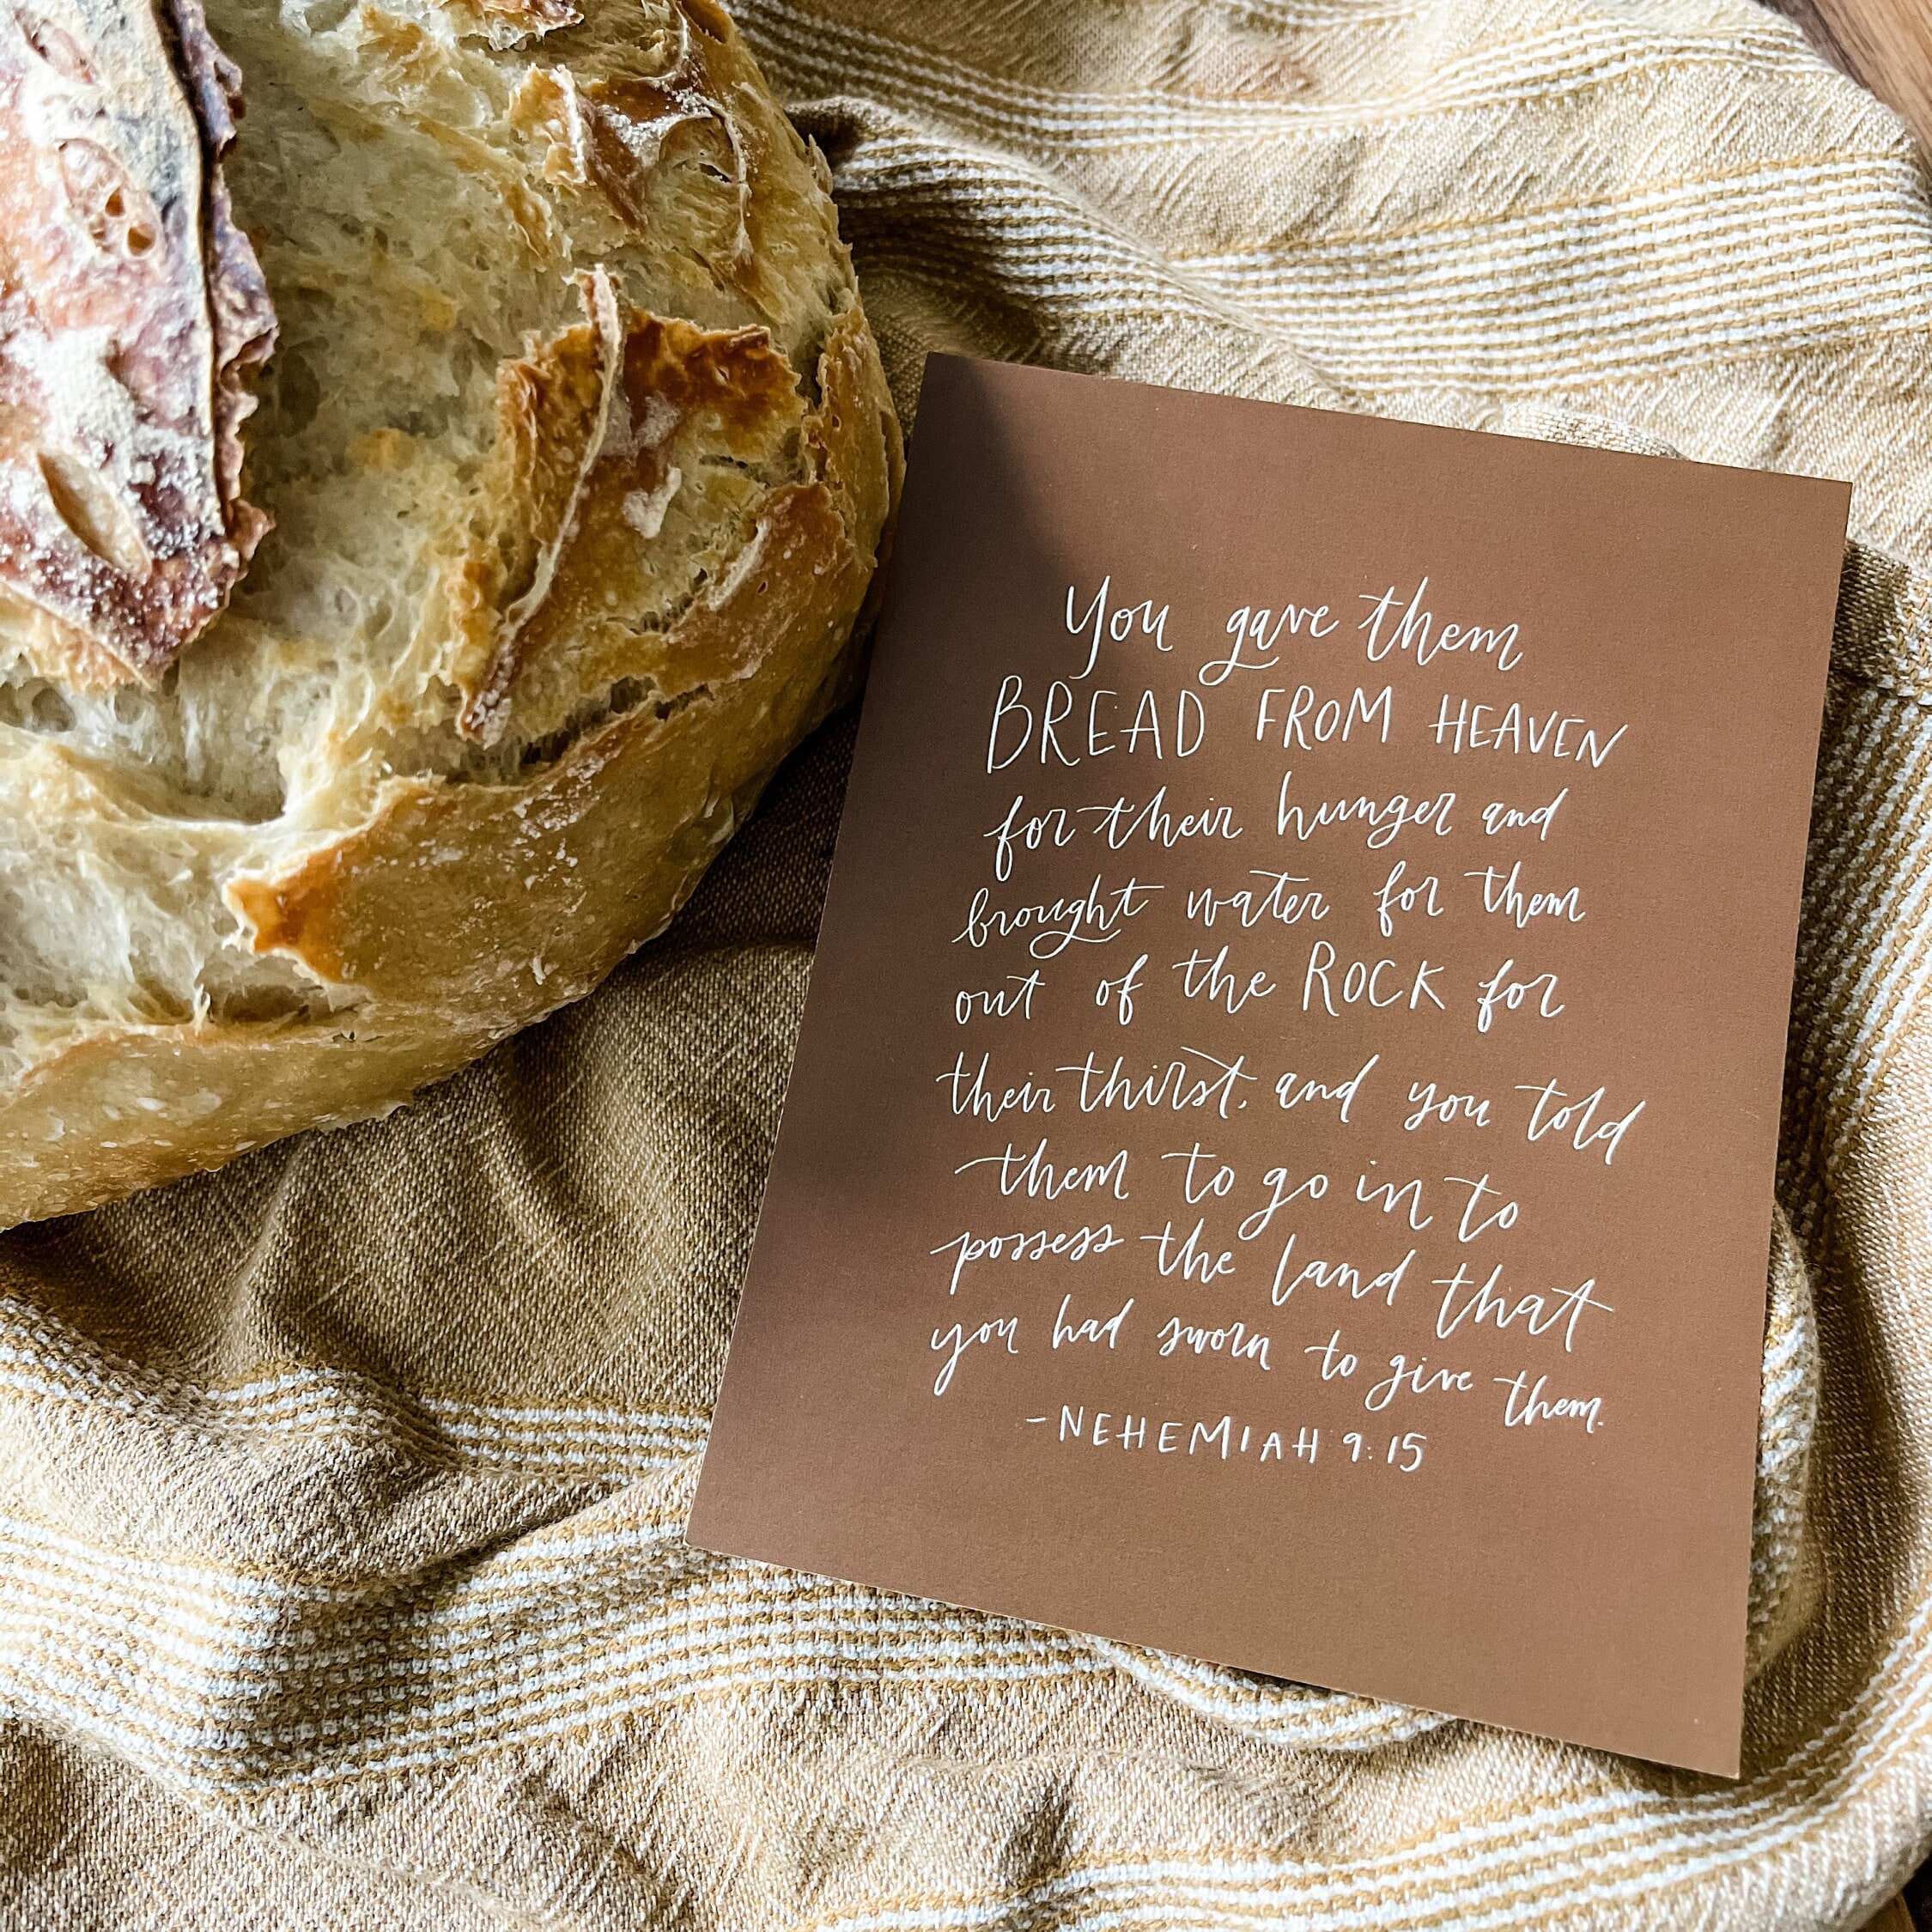 You gave them
BREAD FROM HEAVEN
for their hunger and
brought water for them
out of the ROCK for
their thirst, and you told
them to go in to
possess the land that
you had sworn to give them.
-NEHEMIAH 9:15